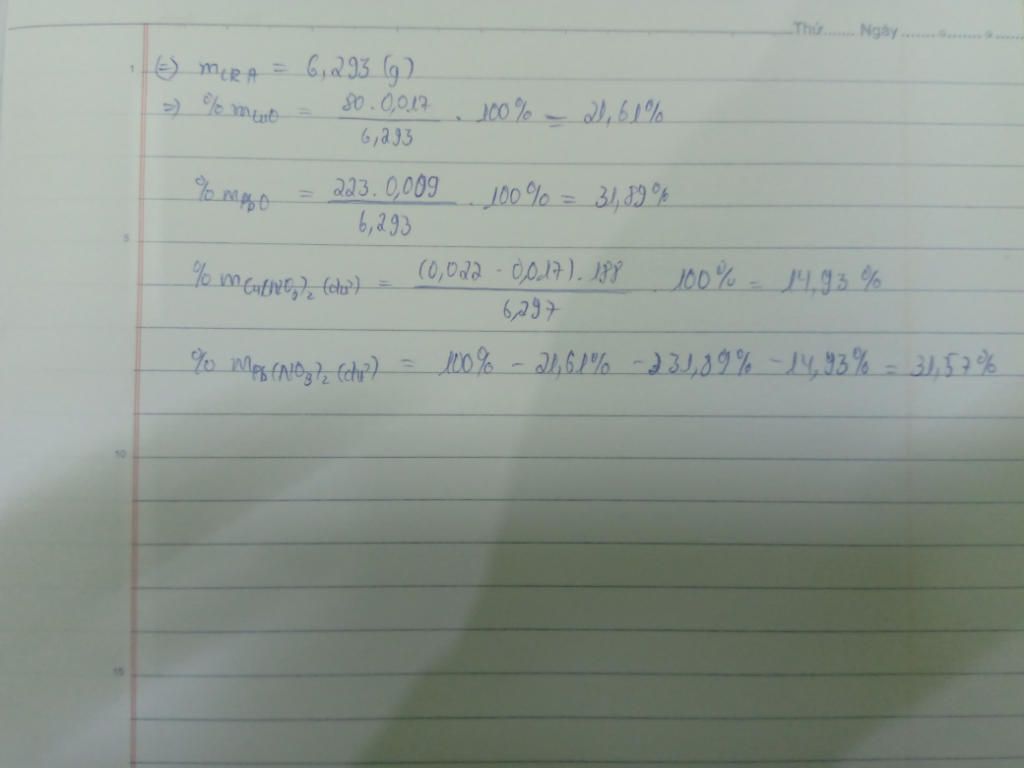 Thứ....... Ngày.......
1 (=) mCRA = 6,293 (g)
=) % mCuO = 80 . 0,017 / 6,293 . 100% = 21,61%
% mPbO = 223 . 0,009 / 6,293 . 100% = 31,89%
5
% mCu(NO3)2 (dư) = (0,022 - 0,017) . 188 / 6,297 . 100% = 14,93 %
% mPb(NO3)2 (dư) = 100% - 21,61% - 31,89% - 14,93% = 31,57%
10
15